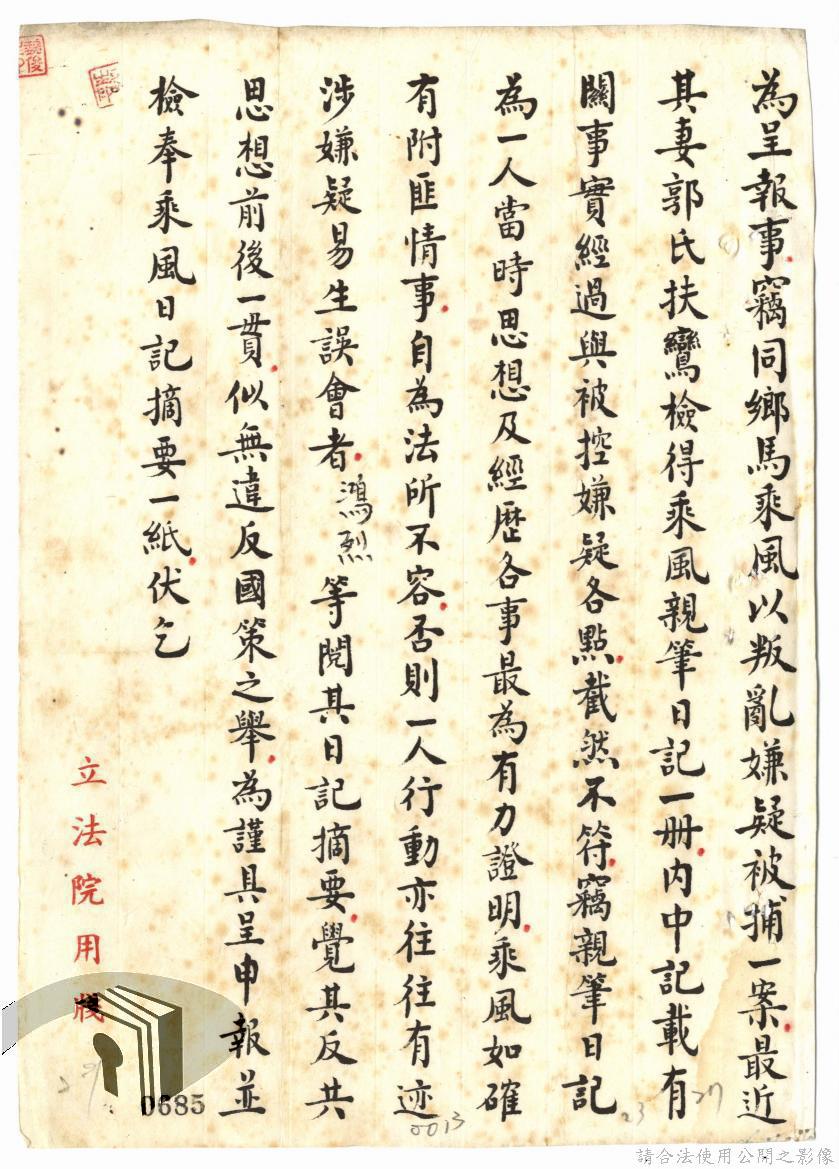 為呈報事竊同鄉馬乘風以叛亂嫌疑被捕一案最近
其妻郭氏扶鸞檢得乘風親筆日記一冊內中記載有
關事實經過與被控嫌疑各點截然不符竊親筆日記
為一人當時思想及經歷各事最為有力證明乘風如確
有附匪情事自為法所不容否則一人行動亦往往有迹
涉嫌疑易生誤會者鴻烈等閱其日記摘要覺其反共
思想前後一貫似無違反國策之舉為謹具呈申報並
檢奉乘風日記摘要一紙伏乞
立法院用牋
0685
0013
23
27
請合法使用公開之影像